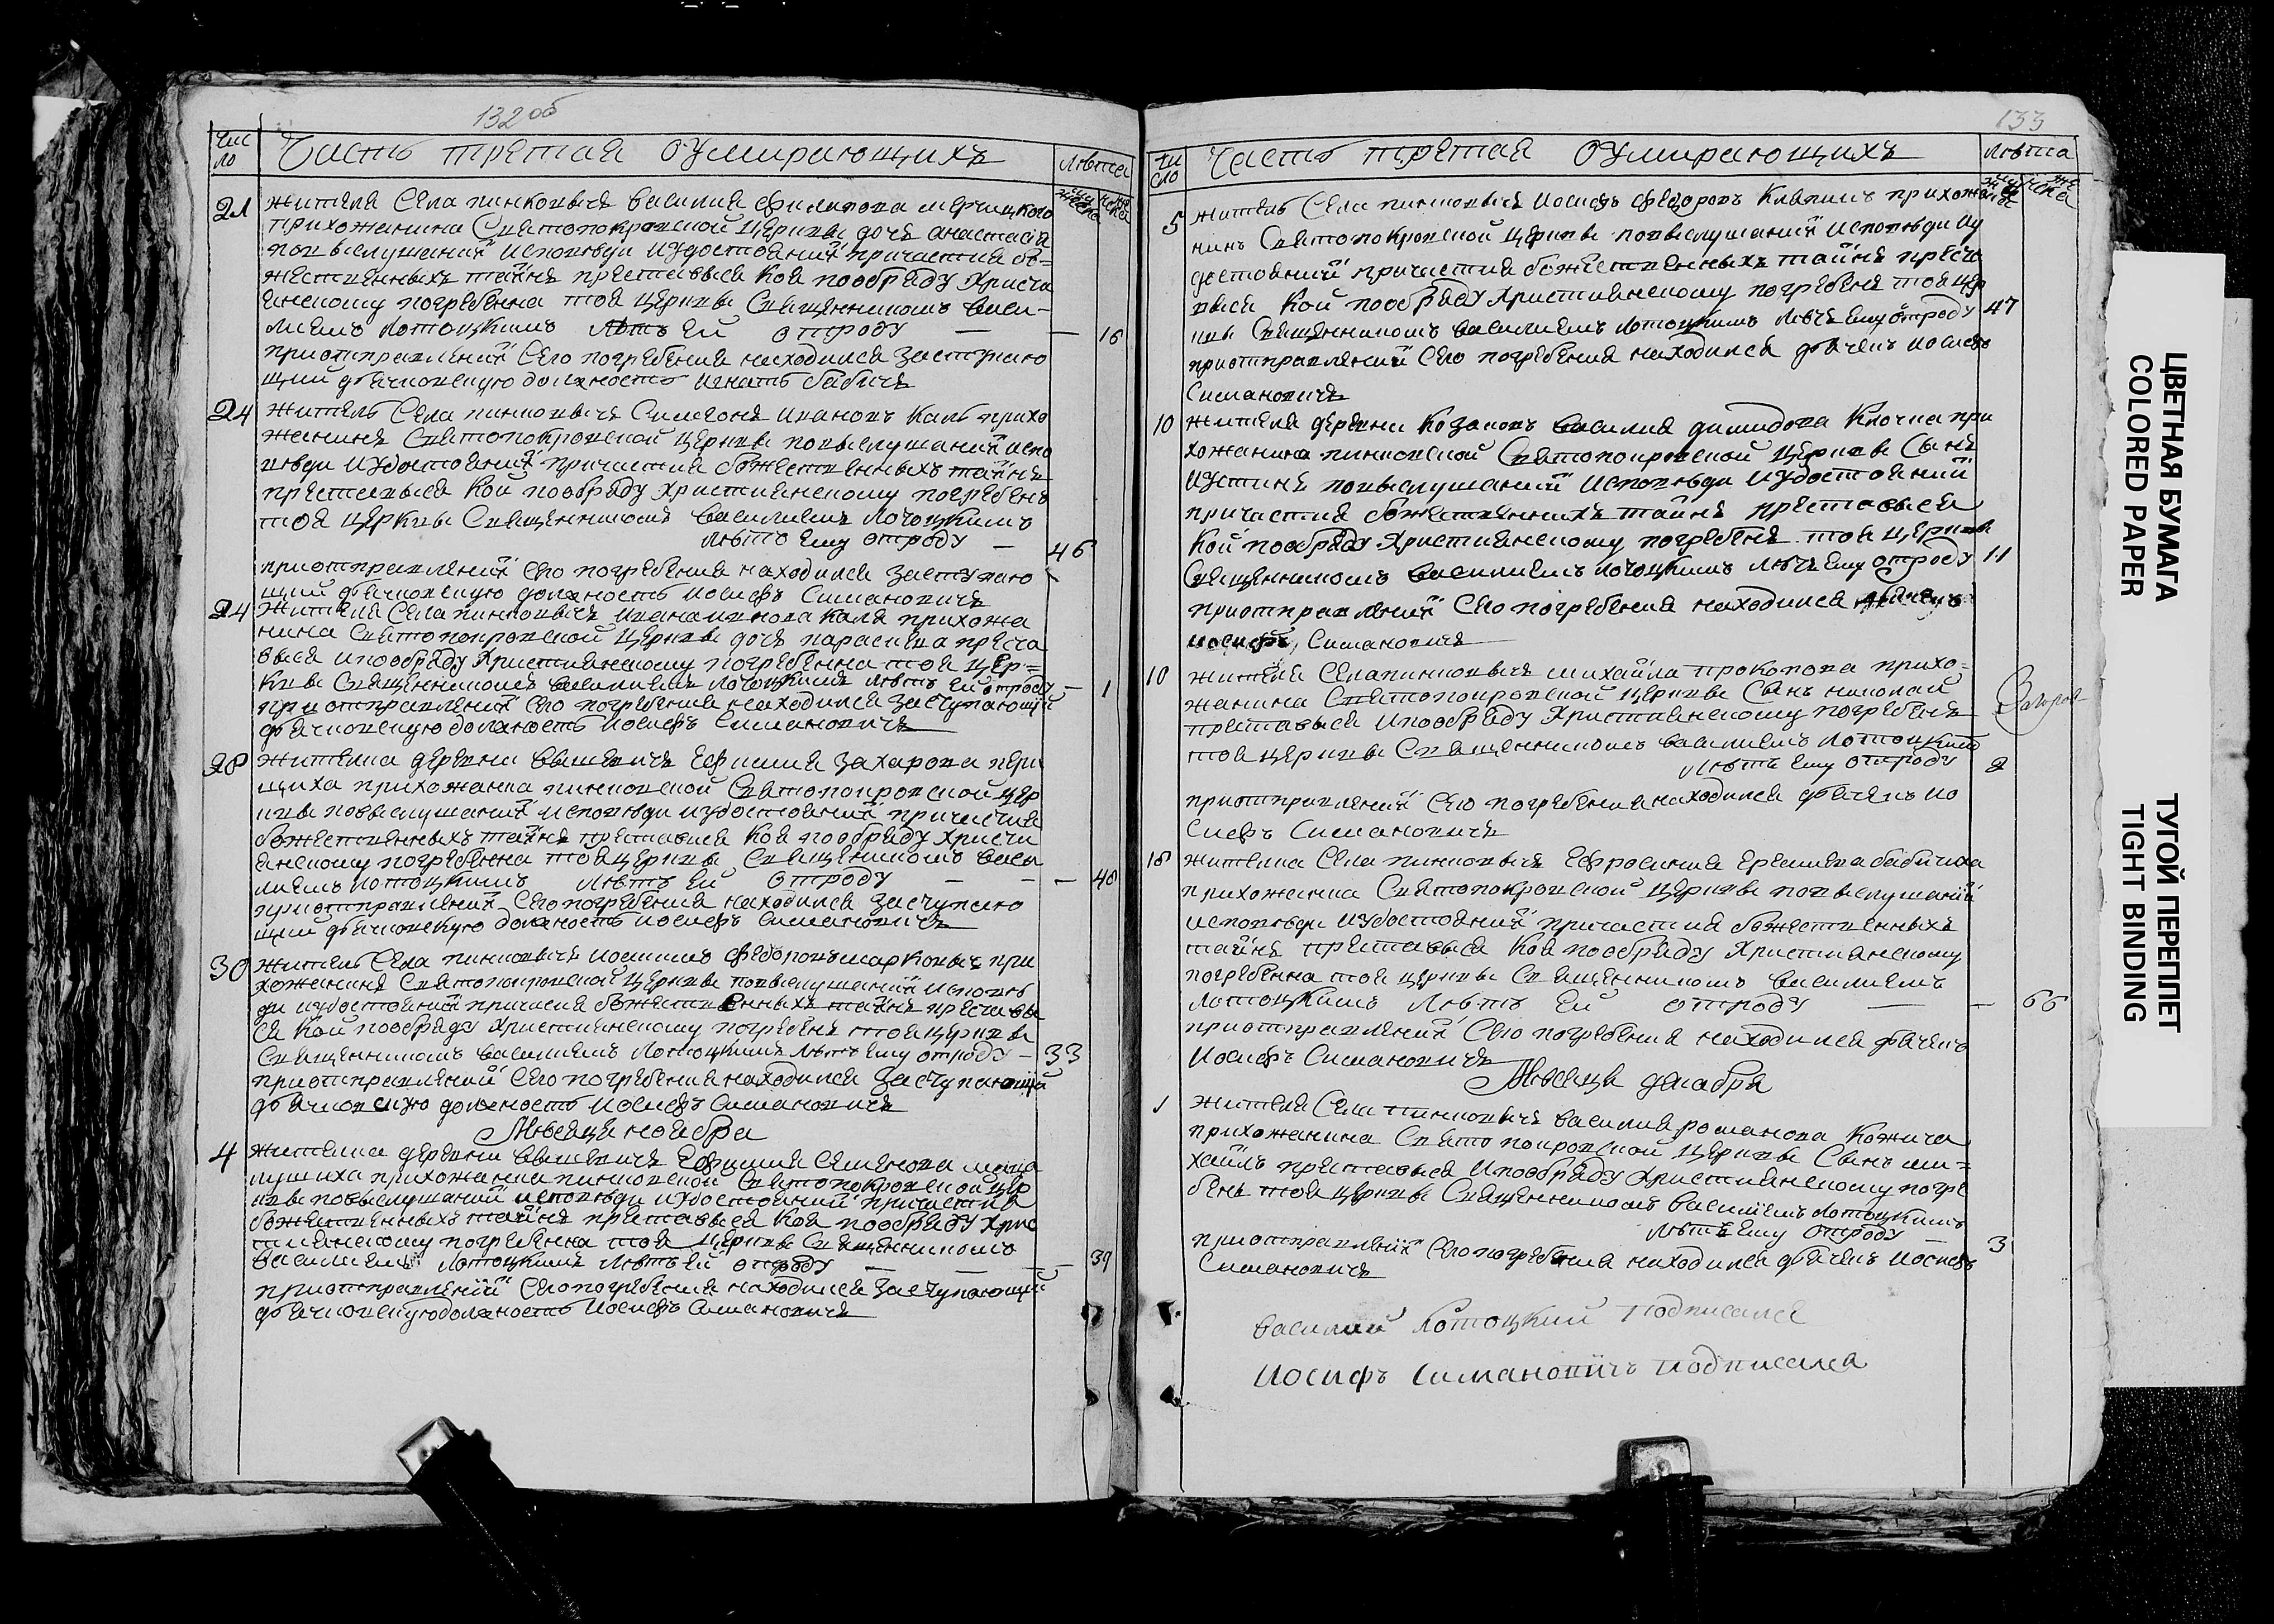 132 об
Чис
ло
Часть третая о Умирающихъ
Лѣта
21
жителя Села пинковичъ василия филипова
прихожанина Святопокровской Церкви дочъ анастасія
повыслушаній исповѣди иудостояній причастия бо=
жественныхъ тайнъ преставися коя пообряду христи
анскому погребенна тоя церкви Священникомъ васи-
лиемъ Лотоцкимъ Лѣтъ ей отроду — — 16
приотправленій Сего погребения находился заступаю
щий дьячковскую должность игнатъ бабичъ
24
житель Села пинковичъ Симеонъ ивановъ каль прихо
жанинъ Святопокровской церкви повыслушаній испо
вѣди иудостояній причастия божественныхъ тайнъ
преставися кой пообряду христианскому погребенъ
тоя церкви Священникомъ василиемъ Лотоцкимъ
Лѣтъ ему отроду — 46
приотправленій сего погребения находился заступаю
щий дьячковскую должность иосифъ Симановичъ
24
жителя Села пинковичъ ивана иванова каля прихожа
нина Святопокровской церкви дочъ параскева преста
вися ипообряду христианскому погребенна тоя цер=
кви Священникомъ василиемъ Лотоцкимъ Лѣтъ ей отроду — 1
приотправленій Сего погребения находился заступающий
дьячковскую должность иосифъ Симановичъ
28
жителка деревни вышевичъ Ефимия захарова
прихожанка пинковской Святопокровской цер
кви повыслушаній исповѣди иудостояній причастия
божественныхъ тайнъ преставися коя пообряду христи
анскому погребенна тоя церкви Священникомъ васи
лиемъ Лотоцкимъ Лѣтъ ей отроду — — — 40
приотправленій Сего погребения находился заступаю
щий дьячковскую должность иосифъ Симановичъ
30
житель Села пинковичъ федоровъ марковичъ при
хожанинъ Святопокровской церкви повыслушаній исповѣ
ди иудостояній причасия божественныхъ тайнъ преставы
ся кой пообряду христианскому погребенъ тоя церкви
Священникомъ василиемъ Лотоцкимъ Лѣтъ ему отроду — 33
приотправленій Сего погребения находился заступающий
дьячковскую должность иосифъ Симановичъ
Мѣсяца ноября
4
жителка деревни вышевичъ Ефимия Семенова
прихожанка пинковской Святопокровской цер
кви повыслушаній исповѣди иудостояній причастия
божественныхъ тайнъ преставися коя пообряду хрис
тианскому погребенна тоя церкви Священникомъ
василиемъ Лотоцкимъ Лѣтъ ей отроду — — 39
приотправленій Сего погребения находился заступающий
дьячковскую должность иосифъ Симановичъ
133
чи
сло
Часть третая о Умирающихъ
Лѣта
5
житель Села пинковичъ иосифъ федоровъ прихожа
нинъ Святопокровской церкви повыслушаній исповѣди иу
достояній причастия божественныхъ тайнъ преста
вися кой пообряду христианскому погребенъ тоя цер
кви Священникомъ василиемъ Лотоцкимъ Лѣтъ ему отроду 47
приотправленій Сего погребения находился дьячекъ иосифъ
Симановичъ
10
жителя деревни козаковъ василия димидова Клочка при
хожанина пинковской Святопокровской церкви Сынъ
иустинъ повыслушаній исповѣди иудостояній
причастия божественнихъ тайнъ преставися
кой пообряду христианскому погребенъ тоя церкви
Священникомъ василиемъ Лотоцкимъ Лѣтъ ему отроду 11
приотправленій Сего погребения находился дьячекъ
иосифъ, Симановичъ
10
жителя Села пинковичъ михайла прокопова прихо=
жанина Святопокровской церкви Сынъ николай
преставися ипообряду христианскому погребенъ
тоя церкви Священникомъ василиемъ Лотоцкимъ
Лѣтъ ему отроду 2
приотправленій Сего погребения находился дьячекъ ио
сифъ Симановичъ
18
жителка Села пинковичъ Ефросиния Еремиева бабичиха
прихожанка Святопокровской церкви повыслушаній
исповѣди иудостояній причастия божественныхъ
тайнъ преставися коя пообряду христианскому
погребенна тоя церкви Священникомъ василиемъ
Лотоцкимъ Лѣтъ ей отроду — — 66
приотправленій Сего погребения находился дьячекъ
иосифъ Симановичъ
Мѣсяца декабря
1
жителя Села пинковичъ василия романова Кожича
прихожанина Святопокровской церкви Сынъ ми=
хаилъ преставися ипообряду христианскому погре
бенъ тоя церкви Священникомъ василиемъ Лотоцкимъ
Лѣтъ ему отроду — 3
приотправленій Сего погребения находился дьячекъ иосифъ
Симановичъ
василий Лотоцкий подписался
иосифъ Симановичъ подписался
ЦВЕТНАЯ БУМАГА
COLORED PAPER
ТУГОЙ ПЕРЕПЛЕТ
TIGHT BINDING